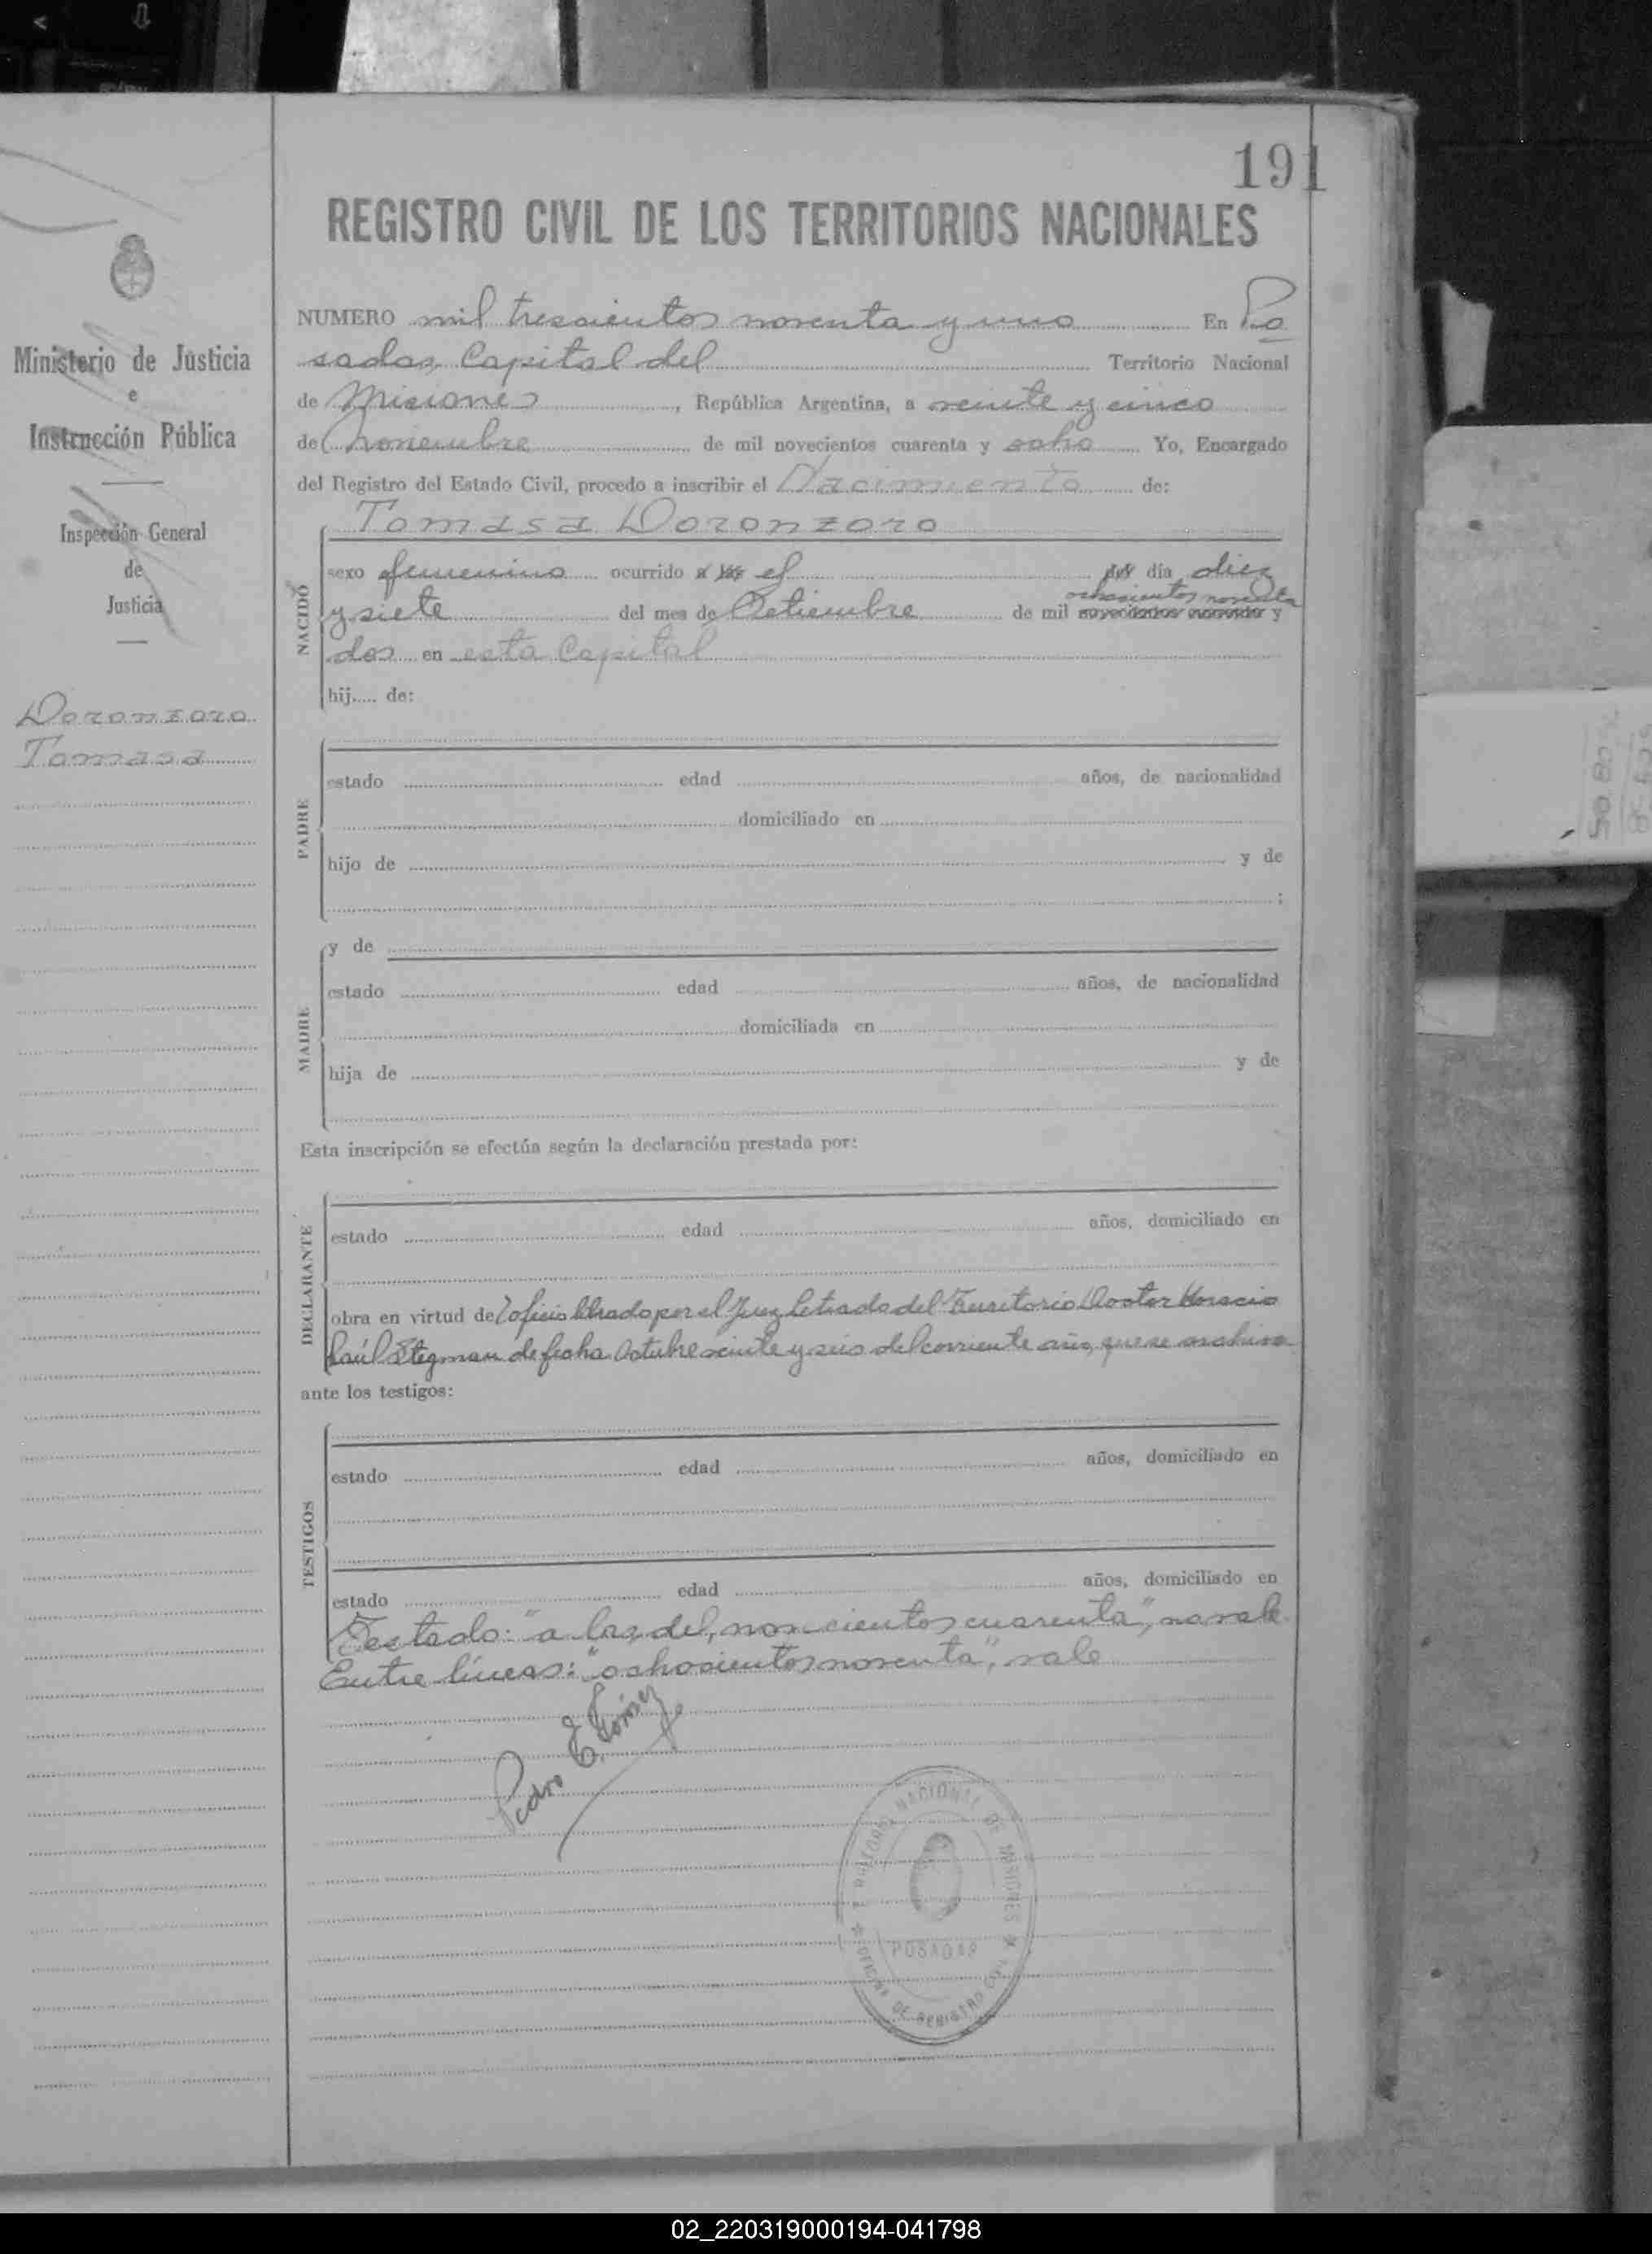 191
REGISTRO CIVIL DE LOS TERRITORIOS NACIONALES
Ministerio de Justicia
e
Instrucción Pública
Inspección General
de
Justicia
Doronzoro
Tomasa
NUMERO mil trescientos noventa y uno En Po
sadas, Capital del Territorio Nacional
de Misiones, República Argentina, a veinte y cinco
de noviembre de mil novecientos cuarenta y ocho Yo, Encargado
del Registro del Estado Civil, procedo a inscribir el Nacimiento de:
Tomasa Doronzoro
NACIDO
sexo femenino ocurrido a las el del día diez
ochocientos noventa
y siete del mes de Setiembre de mil novecientos cuarenta y
dos en esta Capital
hij..... de:
PADRE
estado edad años, de nacionalidad
domiciliado en
hijo de y de
;
MADRE
y de
estado edad años, de nacionalidad
domiciliada en
hija de y de
Esta inscripción se efectúa según la declaración prestada por:
DECLARANTE
estado edad años, domiciliado en
obra en virtud de oficio librado por el Juez Letrado del Territorio Doctor Horacio
Raúl Stegman de fecha Octubre veinte y seis del corriente año, que se archiva
ante los testigos:
TESTIGOS
estado edad años, domiciliado en
estado edad años, domiciliado en
Testado: "a las, del, novecientos cuarenta", no vale
Entre líneas: "ochocientos noventa", vale
Pedro E. Gómez
TERRITORIO NACIONAL DE MISIONES
POSADAS
OFICINA DE REGISTRO CIVIL
02_220319000194-041798